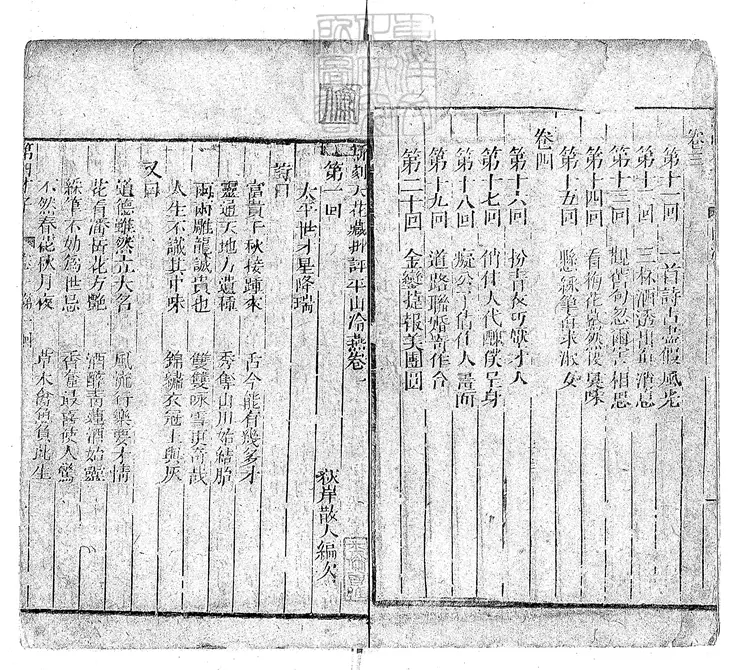 卷三
第十一回 一首詩占盡假風光
第十二回 三杯酒透出真消息
第十三回 觀舊句忽爾害相思
第十四回 看梅花默然投臭味
第十五回 懸綵筆自求淑女
卷四
第十六回 扮青衣巧壓才人
第十七回 俏佳人代醜僕呈身
第十八回 癡公子倩佳人畫面
第十九回 道路聯婚奇作合
第二十回 金鑾報捷美團圓
新刻天花藏批評平山冷燕卷一
荻岸散人編次
第一回
太平世才星降瑞
詩曰
富貴千秋接踵來 古今能有幾多才
靈通天地方遺種 秀奪山川始結胎
兩兩雕龍誠貴也 雙雙咏雪更奇哉
人生不識其中味 錦繡衣冠土與灰
又曰
道德雖然立大名 風流行樂要才情
花看潘岳花方艷 酒醉青蓮酒始靈
綵筆不妨為世忌 香奩最喜使人驚
不然春花秋月夜 草木禽魚負此生
第四才子